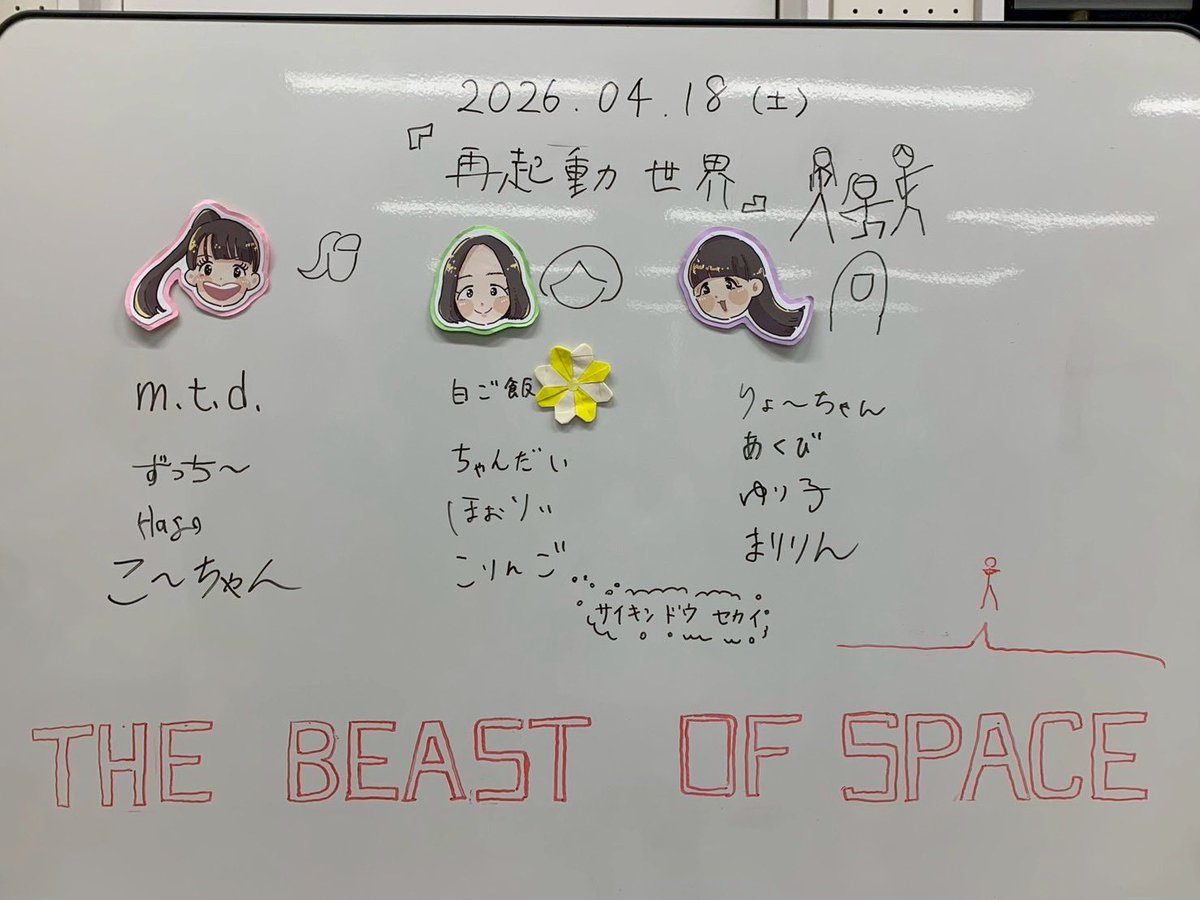 2026.04.18(土)
『再起動 世界』
m.t.d.
ずっち〜
こ〜ちゃん
白ご飯
ちゃんだい
ほおりぃ
こりんご
りょ〜ちゃん
あくび
ゆり子
まりりん
サイキンドウ セカイ
THE BEAST OF SPACE